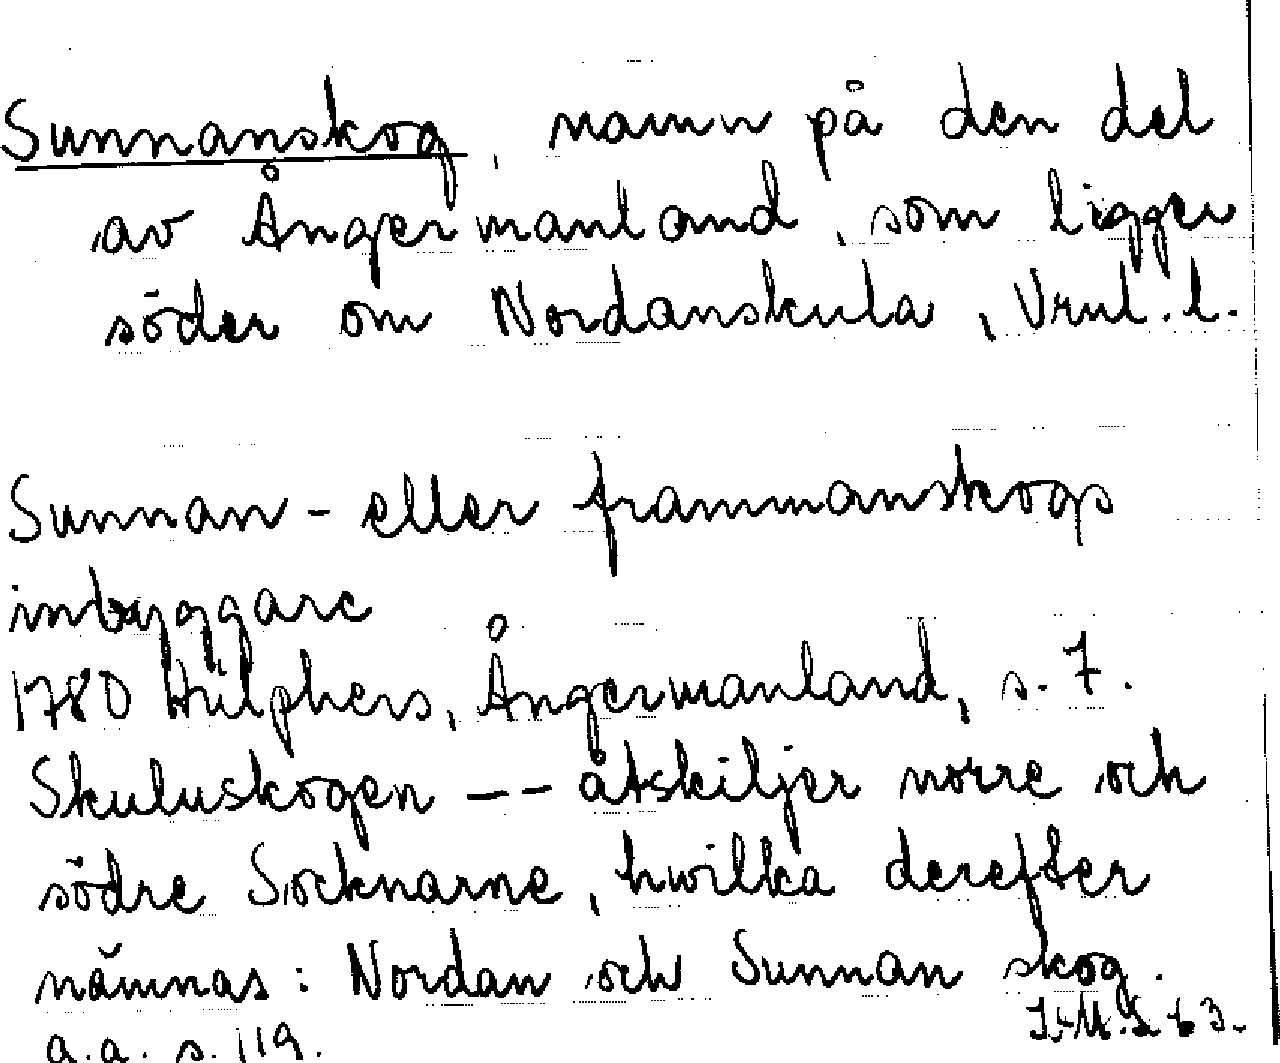 Sunnanskog, namn på den del
av Ångermanland, som ligger
söder om Nordanskula,
Sunnan- eller frammanskogs
inbyggare
1780 Hülphers, Ångermanland, s. 7.
Skuluskogen -- åtskiljer norre och
södre Socknarne, hwilka derefter
nämnas: Nordan och Sunnan skog.
a.a. s. 119.